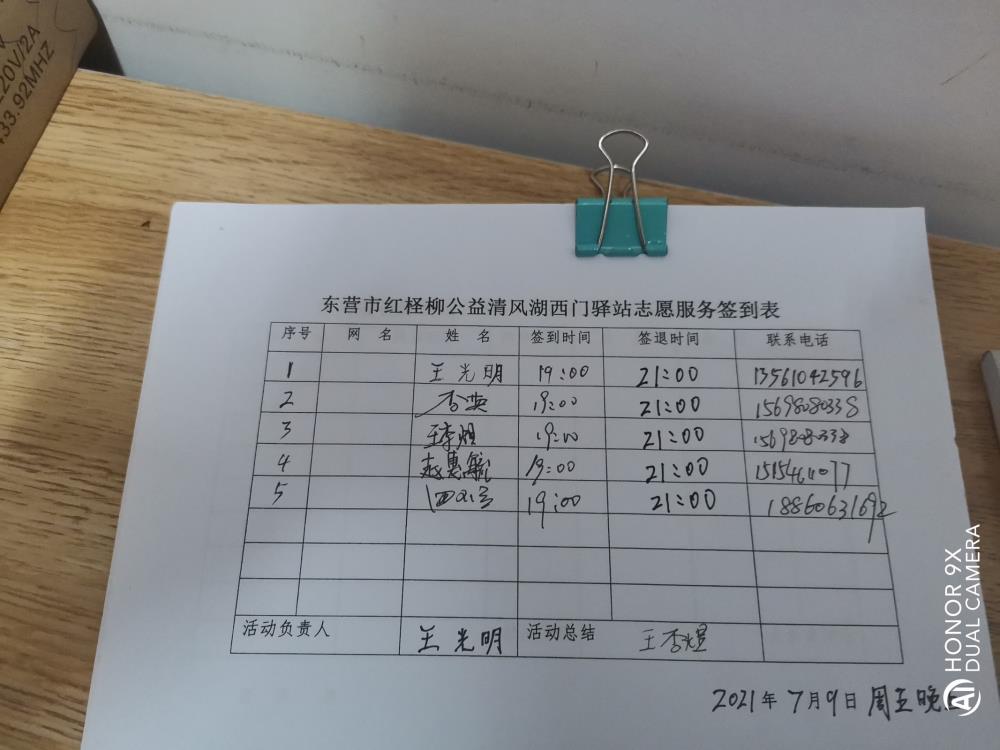 20V/2A
433.92MHZ
东营市红柽柳公益清风湖西门驿站志愿服务签到表
序号 网 名 姓 名 签到时间 签退时间 联系电话
1 王光明 19:00 21:00 13561042596
2 杏英 19:00 21:00 15698080338
3 19:00 21:00
4 赵惠毓 19:00 21:00
5 19:00 21:00 18860631692
活动负责人 王光明 活动总结 王杏煜
2021年7月9日 周五晚上
HONOR 9X
DUAL CAMERA
AI